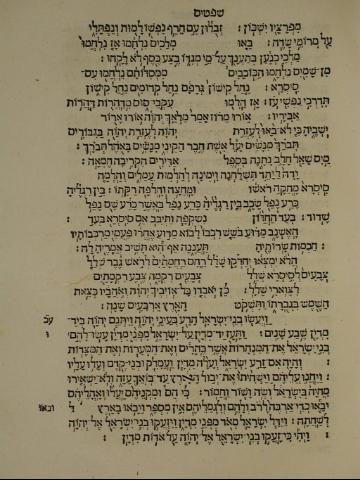 שפטים
מפרציו ישכון : זבלון עם חרף נפשו למות ונפתלי
על מרומי שדה : באו מלכים נלחמו אז נלחמו
מלכי כנען בתענך על מי מגדו בצע כסף לא לקחו :
מן שמים נלחמו הכוכבים ממסלותם נלחמו עם
סיסרא : נחל קישון גרפם נחל קדומים נחל קישון
תדרכי נפשי עז : אז הלמו עקבי סוס מדהרות דהרות
אביריו : אורו מרוז אמר מלאך יהוה אורו ארור
ישביה כי לא באו לעזרת יהוה לעזרת יהוה בגבורים :
תברך מנשים יעל אשת חבר הקיני מנשים באהל תברך :
מים שאל חלב נתנה בספל אדירים הקריבה חמאה :
ידה ליתד תשלחנה וימינה להלמות עמלים והלמה
סיסרא מחקה ראשו ומחצה וחלפה רקתו : בין רגליה
כרע נפל שכב בין רגליה כרע נפל באשר כרע שם נפל
שדוד : בעד החלון נשקפה ותיבב אם סיסרא בעד
האשנב מדוע בשש רכבו לבוא מדוע אחרו פעמי מרכבותיו
: חכמות שרותיה תענינה אף היא תשיב אמריה לה :
הלא ימצאו יחלקו שלל רחם רחמתים לראש גבר שלל
צבעים לסיסרא שלל צבעים רקמה צבע רקמתים
לצוארי שלל : כן יאבדו כל אויביך יהוה ואהביו כצאת
השמש בגברתו ותשקט הארץ ארבעים שנה :
ויעשו בני ישראל הרע בעיני יהוה ויתנם יהוה ביד
מדין שבע שנים : ותעז יד מדין על ישראל מפני מדין עשו להם
בני ישראל את המנהרות אשר בהרים ואת המערות ואת המצדות
: והיה אם זרע ישראל ועלה מדין ועמלק ובני קדם ועלו עליו
: ויחנו עליהם וישחיתו את יבול הארץ עד בואך עזה ולא ישאירו
מחיה בישראל ושה ושור וחמור : כי הם ומקניהם יעלו ואהליהם
יבאו כדי ארבה לרב ולהם ולגמליהם אין מספר ויבאו בארץ
לשחתה : וידל ישראל מאד מפני מדין ויזעקו בני ישראל אל יהוה
: ויהי כי זעקו בני ישראל אל יהוה על אדות מדין